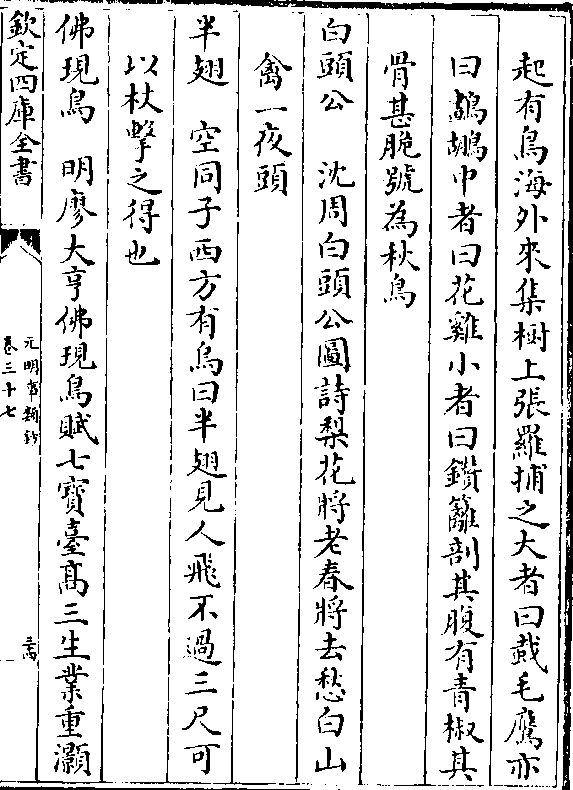 起有鳥海外來集樹上張羅捕之大者曰戴毛鷹亦
曰鷓鶘中者曰花雞小者曰鑽籬剖其腹有青椒其
骨甚脆號為秋鳥
白頭公　沈周白頭公圖詩梨花將老春將去愁白山
禽一夜頭
半翅　空同子西方有鳥曰半翅見人飛不過三尺可
以杖擊之得也
佛現鳥　明廖大亨佛現鳥賦七寶臺髙三生業重灝
欽定四庫全書
元明事類鈔
卷三十七